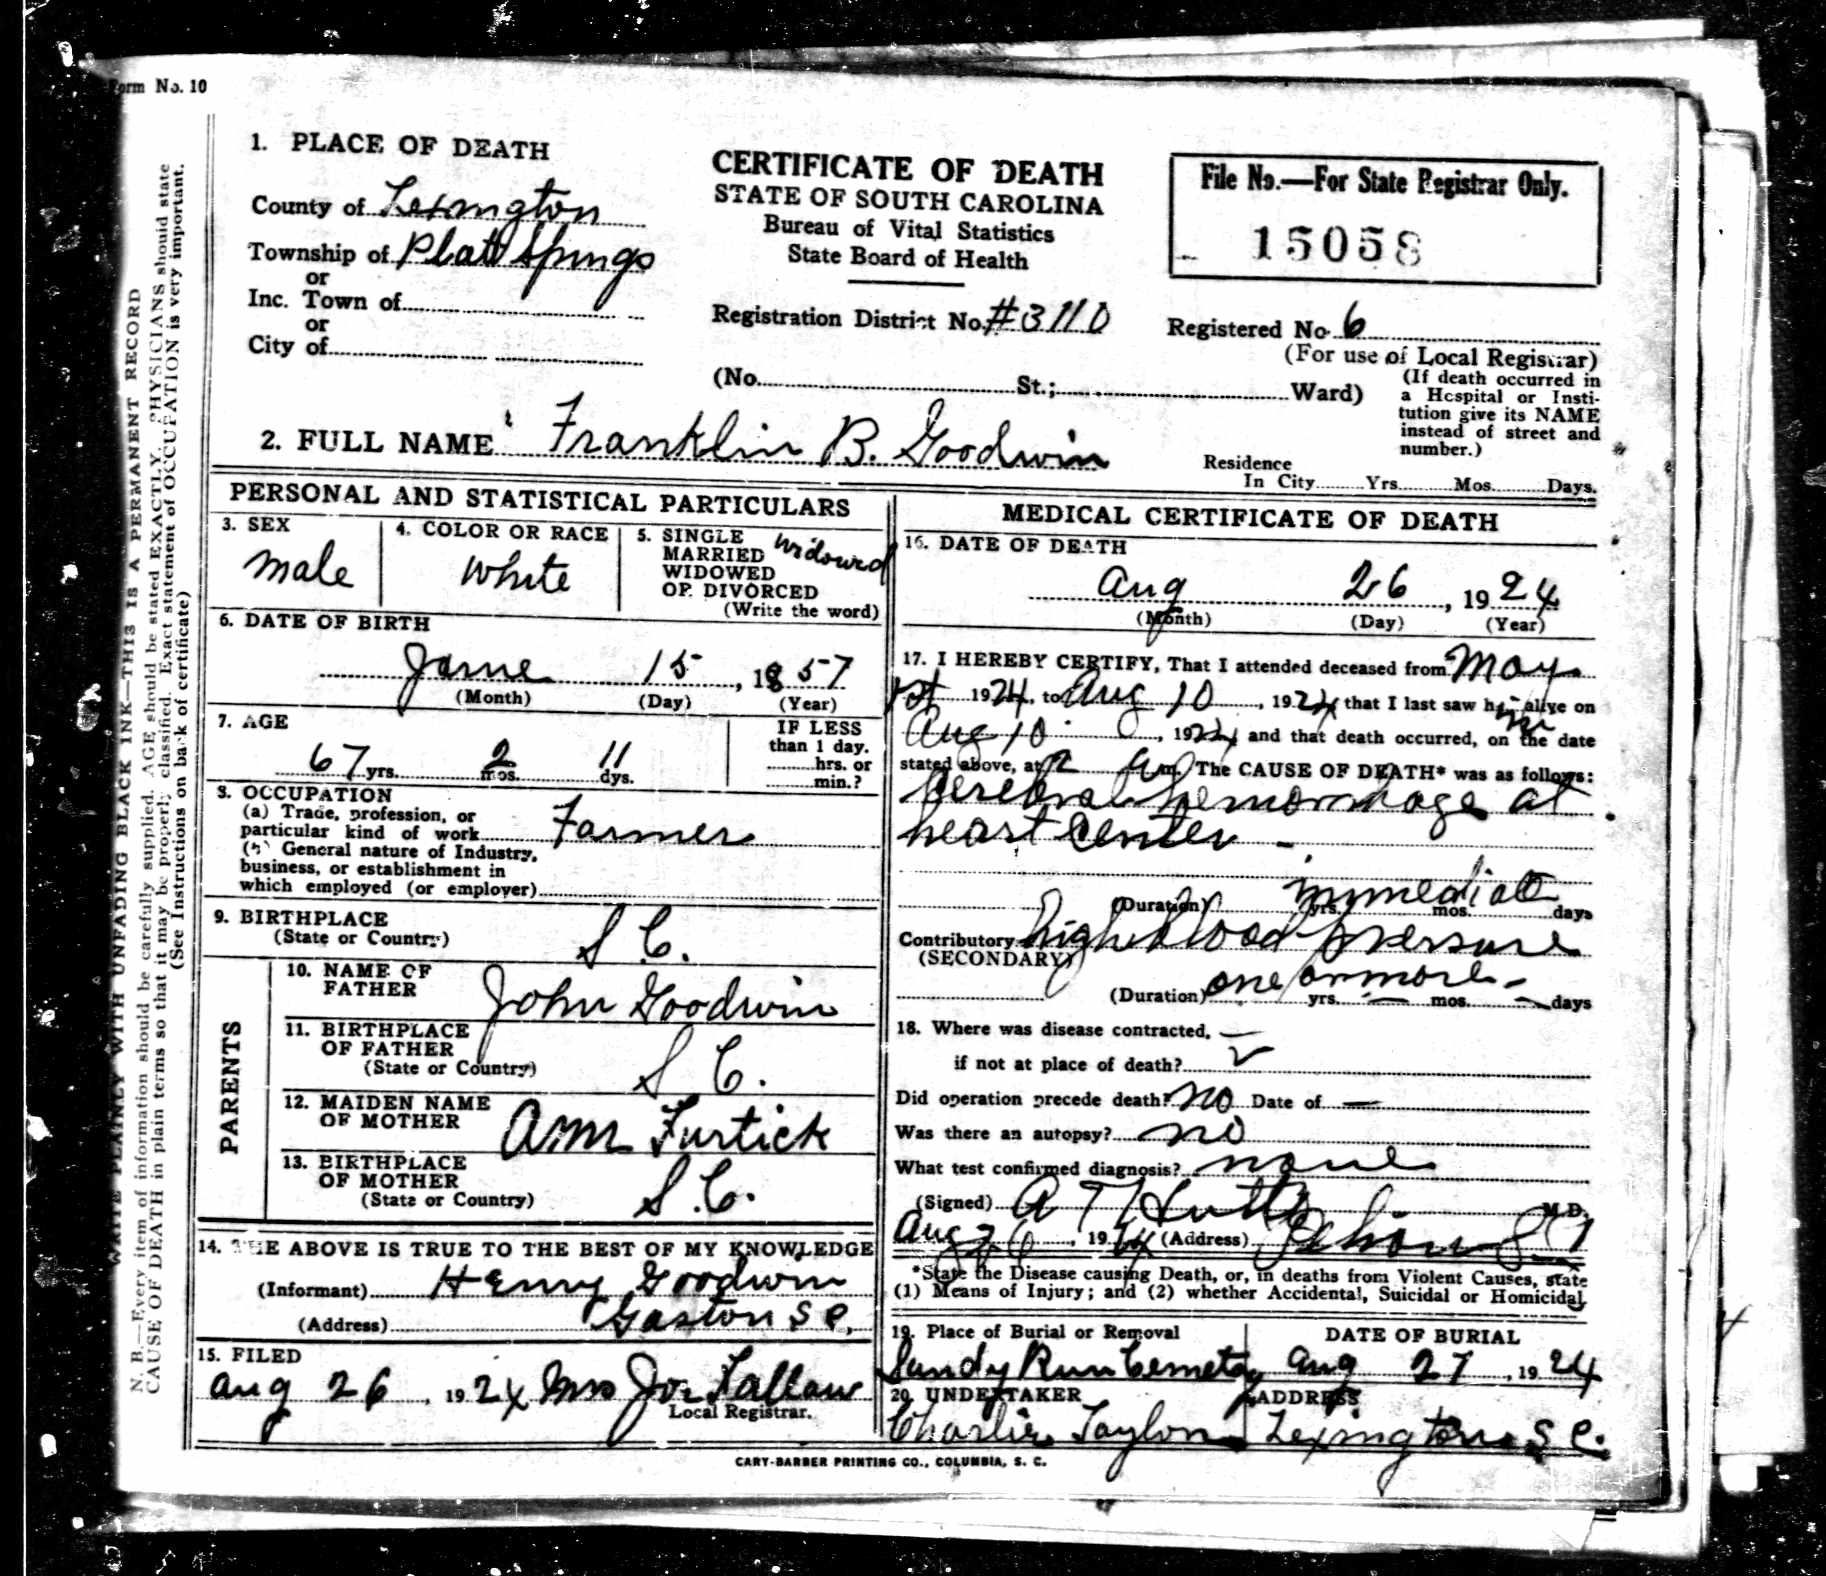 Form No. 10
WRITE PLAINLY WITH UNFADING BLACK INK—THIS IS A PERMANENT RECORD
N. B.—Every item of information should be carefully supplied. AGE should be stated EXACTLY. PHYSICIANS should state
CAUSE OF DEATH in plain terms so that it may be properly classified. Exact statement of OCCUPATION is very important.
(See Instructions on back of certificate)
1. PLACE OF DEATH
County of Lexington
Township of Platt Springs
or
Inc. Town of
or
City of
CERTIFICATE OF DEATH
STATE OF SOUTH CAROLINA
Bureau of Vital Statistics
State Board of Health
Registration District No. #3110
File No.—For State Registrar Only.
15058
Registered No. 6
(For use of Local Registrar)
(No. St.; Ward)
(If death occurred in
a Hospital or Insti-
tution give its NAME
instead of street and
number.)
2. FULL NAME Franklin B. Goodwin
Residence
In City Yrs. Mos. Days.
PERSONAL AND STATISTICAL PARTICULARS
3. SEX
male
4. COLOR OR RACE
white
5. SINGLE
MARRIED
WIDOWED
OR DIVORCED
widowed
(Write the word)
6. DATE OF BIRTH
June 15, 1857
(Month) (Day) (Year)
7. AGE
67 yrs. 2 mos. 11 dys.
IF LESS
than 1 day.
hrs. or
min.?
8. OCCUPATION
(a) Trade, profession, or
particular kind of work Farmer
(b) General nature of Industry,
business, or establishment in
which employed (or employer)
9. BIRTHPLACE
(State or Country) S C.
PARENTS
10. NAME OF
FATHER John Goodwin
11. BIRTHPLACE
OF FATHER
(State or Country) S C.
12. MAIDEN NAME
OF MOTHER Ann Furtick
13. BIRTHPLACE
OF MOTHER
(State or Country) S.C.
14. THE ABOVE IS TRUE TO THE BEST OF MY KNOWLEDGE
(Informant) Henry Goodwin
(Address) Gaston S C.
15. FILED
Aug 26, 1924 Mrs Joe Fallaw
Local Registrar.
MEDICAL CERTIFICATE OF DEATH
16. DATE OF DEATH
Aug 26, 1924
(Month) (Day) (Year)
17. I HEREBY CERTIFY, That I attended deceased from May
1st 1924, to Aug 10, 1924 that I last saw him alive on
Aug 10, 1924 and that death occurred, on the date
stated above, at 2 a m. The CAUSE OF DEATH* was as follows:
Cerebral hemorrhage at
heart center -
immediate
(Duration) yrs. mos. days
Contributory high blood pressure
(SECONDARY)
(Duration) one or more yrs. — mos. — days
18. Where was disease contracted, —
if not at place of death?
Did operation precede death? no Date of —
Was there an autopsy? no
What test confirmed diagnosis? none
(Signed) A T M.D.
Aug 26, 1924 (Address) Pelion S C
*State the Disease causing Death, or, in deaths from Violent Causes, state
(1) Means of Injury; and (2) whether Accidental, Suicidal or Homicidal.
19. Place of Burial or Removal
Sandy Run Cemetery
DATE OF BURIAL
Aug 27, 1924
20. UNDERTAKER
Charlie Taylor
ADDRESS
Lexington S C.
CARY-BARBER PRINTING CO., COLUMBIA, S. C.